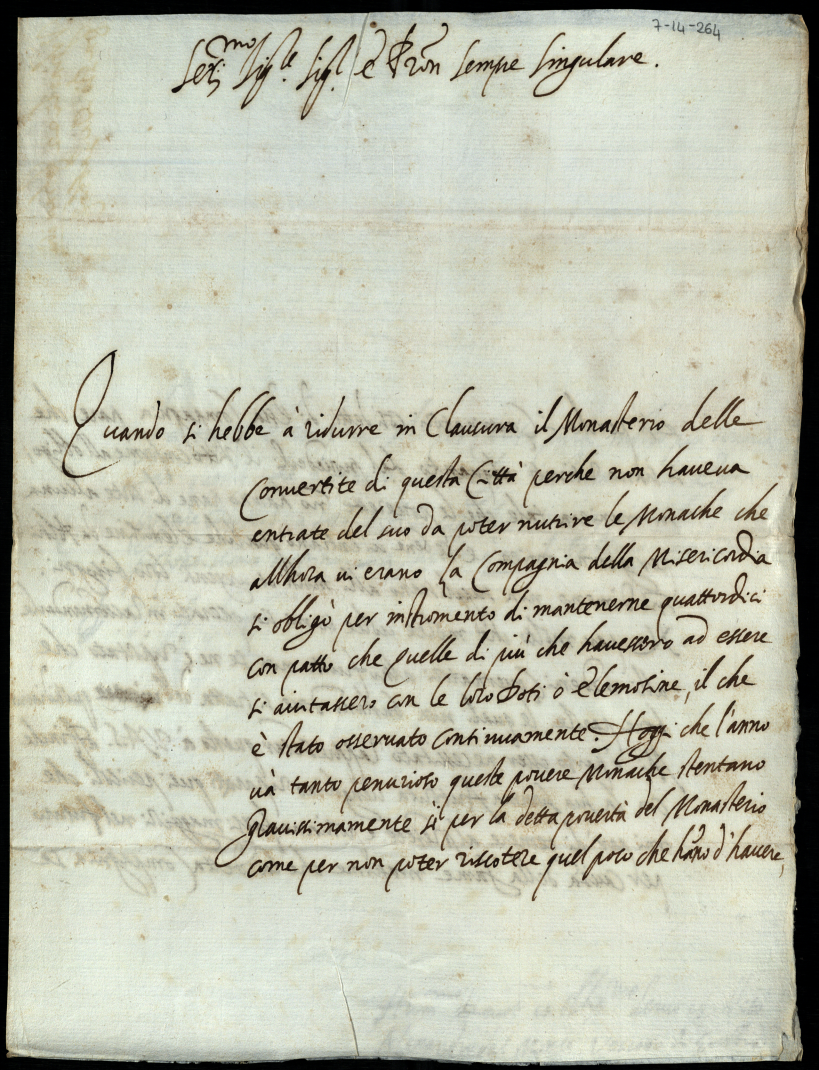 7-14-264
Ser.mo Sig.re Sig.r è Pron sempe Singulare.
Quando si hebbe à ridurre in Clausura il Monasterio delle
Convertite di questa Città perche non haveva
entrate del suo da poter nutrire le Monache che
allhora vi erano la Compagnia della Misericordia
si obligò per instromento di mantenerne quattordici
con patto che quelle di più che havessero ad essere
si aiutassero con le loro Doti ò Elemosine, il che
è stato osservato continuamente. Hoggi che l'anno
và tanto penurioso queste povere Monache stentano
gravissimamente sì per la detta povertà del Monasterio
come per non poter riscotere quel poco che hano d'havere,